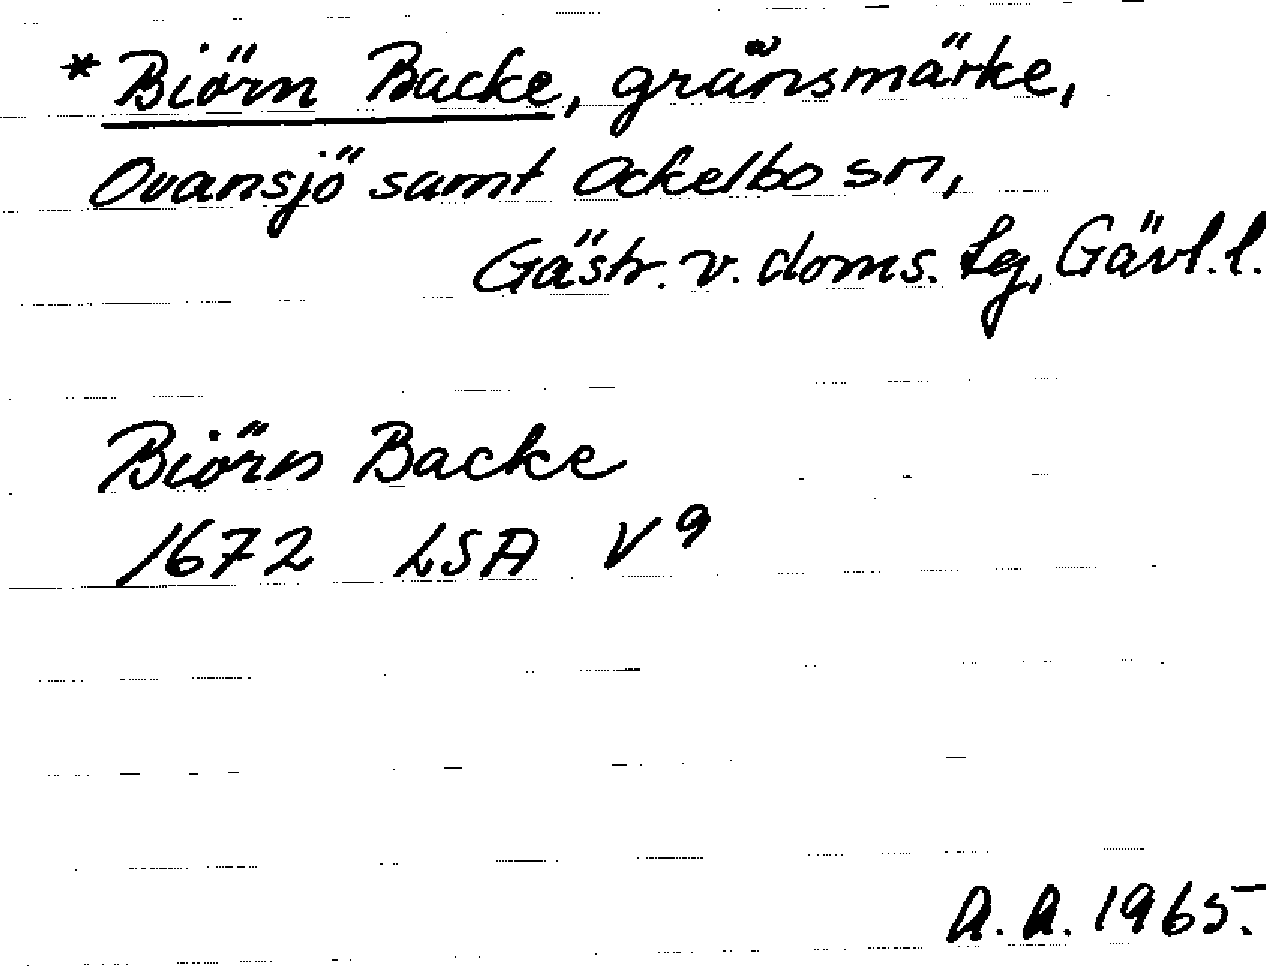 * Biörn Backe, gränsmärke,
Ovansjö samt Ockelbo sn,
Gästr. v. doms. Lg, Gävl. l.
Biörn Backe
1672 LSA V9
A. A. 1965.